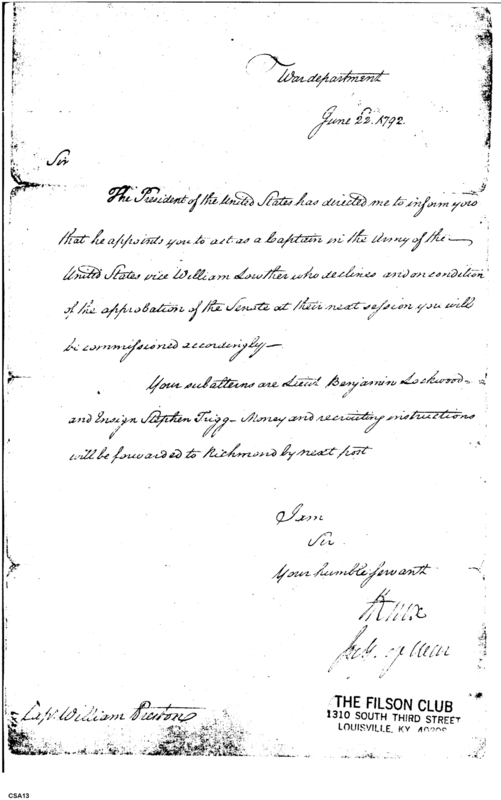 War department
June 22. 1792.
Sir
The President of the United States has directed me to inform you
that he appoints you to act as a Captain in the Army of the
United States vice William Lowther who declines and on condition
of the approbation of the Senate at their next session you will
be commissioned accordingly—
Your subalterns are Lieut Benjamin Lockwood
and Ensign Stephen Trigg – Money and recruiting instructions
will be forwarded to Richmond by next post
I am
Sir
Your humble Servant
HKnox
Secy. of War
Capt. William Preston
THE FILSON CLUB
1310 SOUTH THIRD STREET
LOUISVILLE, KY
CSA13